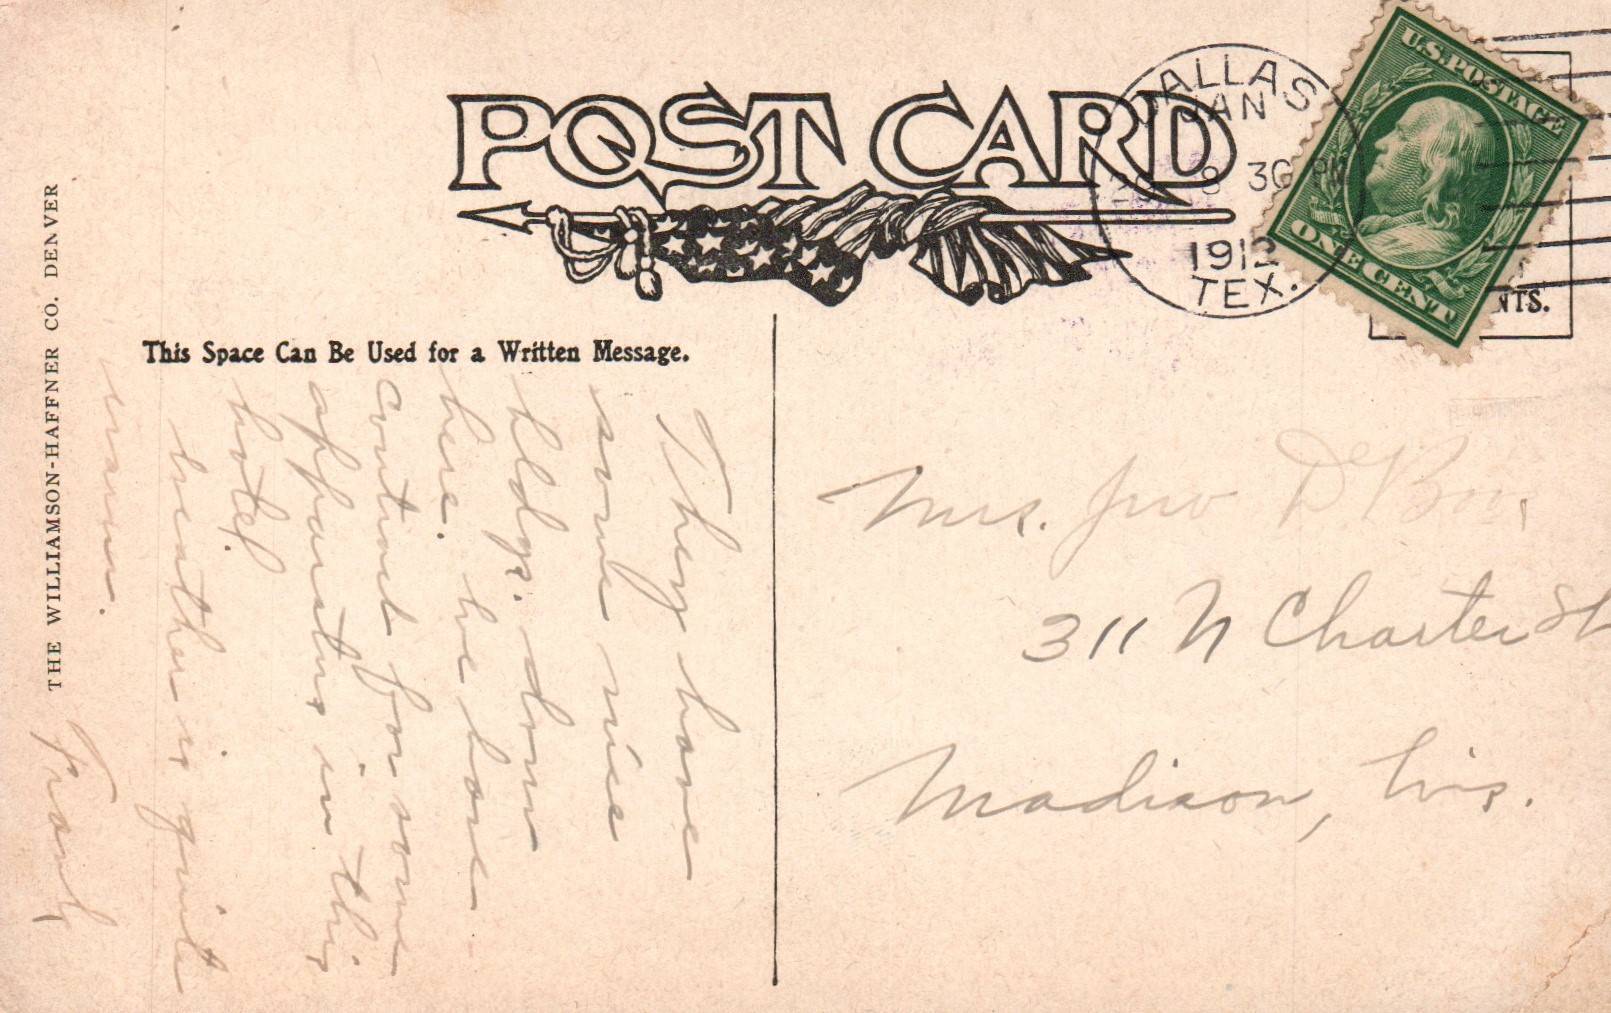 POST CARD
DALLAS
JAN
8 30 PM
1912
TEX.
U.S. POSTAGE
ONE CENT
NTS.
THE WILLIAMSON-HAFFNER CO. DENVER
This Space Can Be Used for a Written Message.
They have
some nice
bldgs. down
here. We have
contract for some
apparatus in this
hotel.
Weather is quite
warm.
Frank
Mrs. Jno D
311 N Charter St
Madison, Wis.